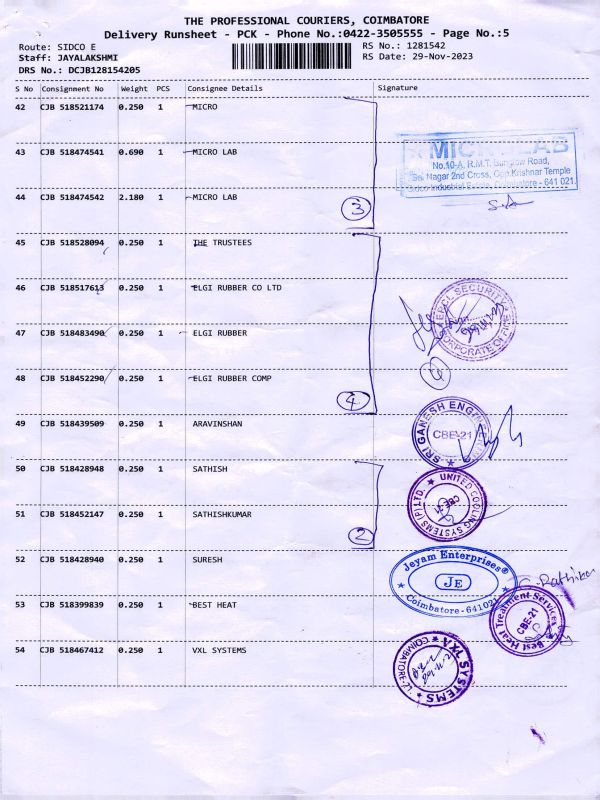 THE PROFESSIONAL COURIERS, COIMBATORE
Delivery Runsheet - PCK - Phone No.:0422-3505555 - Page No.:5
Route: SIDCO E
RS No.: 1281542
Staff: JAYALAKSHMI
RS Date: 29-Nov-2023
DRS No.: DCJB128154205
S No Consignment No Weight PCS Consignee Details Signature
42 CJB 518521174 0.250 1 MICRO
43 CJB 518474541 0.690 1 MICRO LAB
MICRO LAB
No.10-A, R.M.T. Bungalow Road,
Sai Nagar 2nd Cross, Opp.Krishnar Temple
Sidco Industrial Estate, Coimbatore - 641 021.
44 CJB 518474542 2.180 1 MICRO LAB
3
45 CJB 518528094 0.250 1 THE TRUSTEES
46 CJB 518517613 0.250 1 ELGI RUBBER CO LTD
SECURITY
CORPORATE OFFICE
47 CJB 518483490 0.250 1 ELGI RUBBER
48 CJB 518452290 0.250 1 ELGI RUBBER COMP
4
49 CJB 518439509 0.250 1 ARAVINSHAN
SRI GANESH ENGINEER
CBE-21
50 CJB 518428948 0.250 1 SATHISH
UNITED COOLING SYSTEMS (P) LTD.
CBE-21
51 CJB 518452147 0.250 1 SATHISHKUMAR
2
52 CJB 518428940 0.250 1 SURESH
Jeyam Enterprises
JE
Coimbatore - 641021
53 CJB 518399839 0.250 1 BEST HEAT
Best Heat Treatment Services
CBE-21
54 CJB 518467412 0.250 1 VXL SYSTEMS
VXL SYSTEMS
COIMBATORE